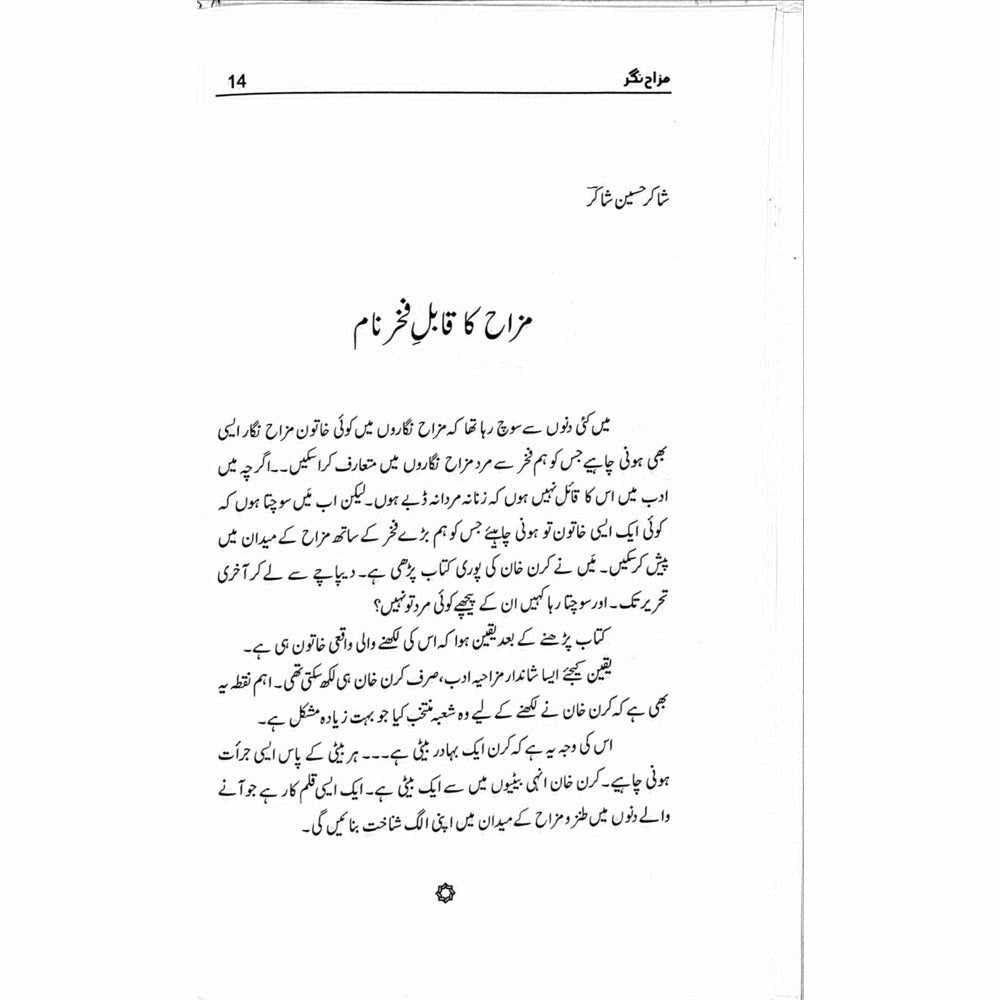 مزاح نگر
14
شاکر حسین شاکرؔ
مزاح کا قابلِ فخر نام
میں کئی دنوں سے سوچ رہا تھا کہ مزاح نگاروں میں کوئی خاتون مزاح نگار ایسی
بھی ہونی چاہیے جس کو ہم فخر سے مرد مزاح نگاروں میں متعارف کراسکیں۔۔اگرچہ میں
ادب میں اس کا قائل نہیں ہوں کہ زنانہ مردانہ ڈبے ہوں۔لیکن اب مَیں سوچتا ہوں کہ
کوئی ایک ایسی خاتون تو ہونی چاہیئے جس کو ہم بڑے فخر کے ساتھ مزاح کے میدان میں
پیش کرسکیں۔ مَیں نے کرن خان کی پوری کتاب پڑھی ہے۔ دیباچے سے لے کر آخری
تحریر تک۔اور سوچتا رہا کہیں ان کے پیچھے کوئی مرد تو نہیں؟
کتاب پڑھنے کے بعد یقین ہوا کہ اس کی لکھنے والی واقعی خاتون ہی ہے۔
یقین کیجئے ایسا شاندار مزاحیہ ادب، صرف کرن خان ہی لکھ سکتی تھی۔ اہم نقطہ یہ
بھی ہے کہ کرن خان نے لکھنے کے لیے وہ شعبہ منتخب کیا جو بہت زیادہ مشکل ہے۔
اس کی وجہ یہ ہے کہ کرن ایک بہادر بیٹی ہے۔۔۔ ہر بیٹی کے پاس ایسی جرأت
ہونی چاہیے۔ کرن خان انہی بیٹیوں میں سے ایک بیٹی ہے۔ ایک ایسی قلم کار ہے جو آنے
والے دنوں میں طنز و مزاح کے میدان میں اپنی الگ شناخت بنائیں گی۔